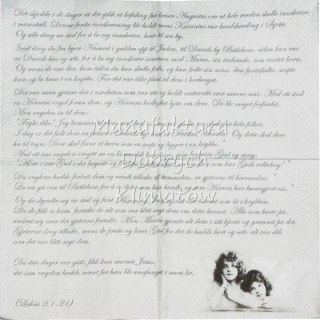 Det skjedde i de dager at det gikk ut befaling fra keiser Augustus om at hele verden skulle innskrives
i manntall. Denne første innskrivning ble holdt mens Kvirinius var landshøvding i Syria.
Og alle drog av sted for å la seg innskrive, hver til sin by.
Josef drog da fra byen Nasaret i Galilea opp til Judea, til Davids by Betlehem, siden han var
av Davids hus og ætt, for å la seg innskrive sammen med Maria, sin trolovede, som ventet barn.
Og mens de var der, kom tiden da hun skulle føde, og hun fødte sin sønn, den førstefødte, svøpte
ham og la ham i en krybbe. For det var ikke plass til dem i herberget.
Det var noen gjetere der i området som var ute og holdt nattevakt over sauene sine. Med ett stod
en Herrens engel foran dem, og Herrens herlighet lyste om dem. De ble meget forferdet.
Men engelen sa til dem:
"Frykt ikke! Jeg
for hele folket.
I dag er det født dere en
Og dette skal dere
ha til tegn: Dere skal finne et barn som er svøpt og ligger i en krybbe."
Med ett var engelen omgitt av
som lovpriste Gud og sang:
"Ære være Gud i det høyeste og
har Guds velbehag!"
Da englene hadde forlatt dem og vendt tilbake til himmelen, sa gjeterne til hverandre:
"La oss gå inn til Betlehem for å se
som har hendt, og som Herren har kunngjort oss."
Og de skyndte seg av sted og fant
Da de fikk se ham, fortalte de alt som var blitt sagt dem om dette barnet. Alle som hørte på,
undret seg over det gjeterne fortalte. Men Maria gjemte alt dette i sitt hjerte og grunnet på det.
Gjeterne drog tilbake, mens de priste og lovet Gud for det de hadde hørt og sett; alt var slik
som det var blitt sagt dem.
Da åtte dager var gått, fikk han navnet Jesus,
det som engelen hadde nevnt før han ble unnfanget i mors liv.
(Lukas 2, 1-21)
Manufaktura
Dobrych
Klimatów